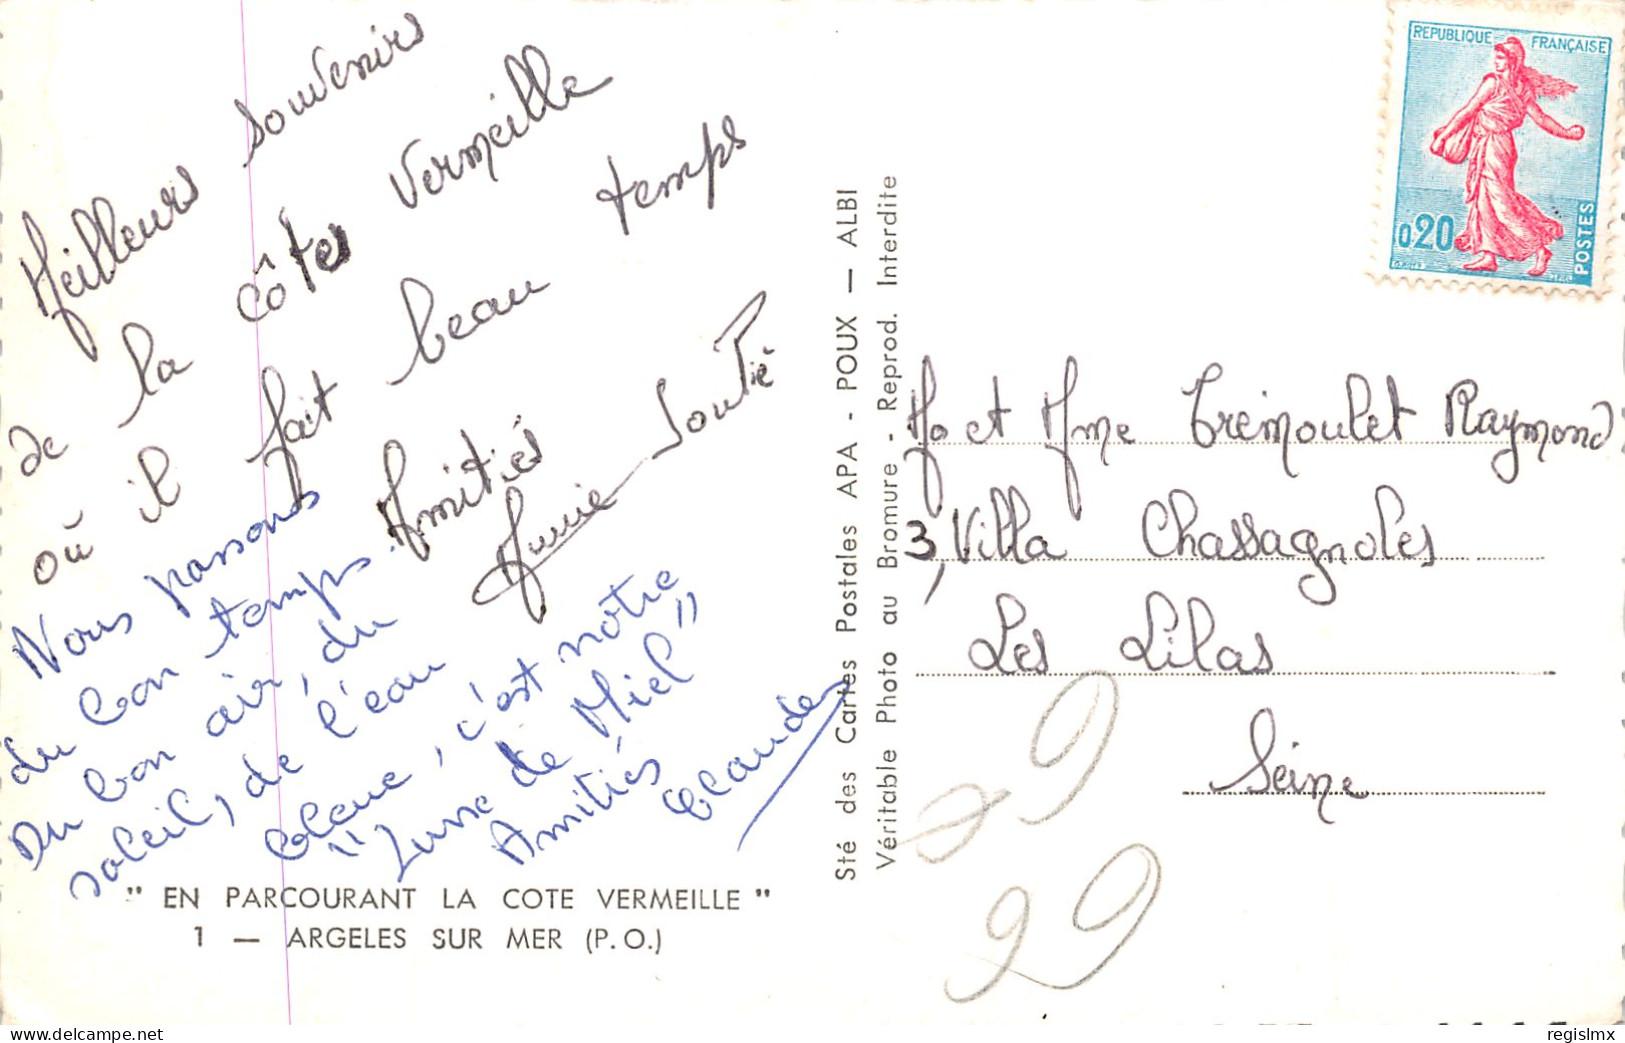 Meilleurs souvenirs
de la côtes Vermeille
où il fait beau temps
Amitiés
Annie Soutié
Nous passons
du bon temps.
Du bon air, du
soleil, de l'eau
bleue, c'est notre
"Lune de Miel"
Amitiés
Claude
" EN PARCOURANT LA COTE VERMEILLE "
1 — ARGELES SUR MER (P. O.)
Sté des Cartes Postales APA - POUX — ALBI
Véritable Photo au Bromure - Reprod. Interdite
REPUBLIQUE FRANÇAISE
0,20
POSTES
Mr et Mme Trémoulet Raymond
3, Villa Chassagnoles
Les Lilas
Seine
29
29
delcampe.net
regislmx